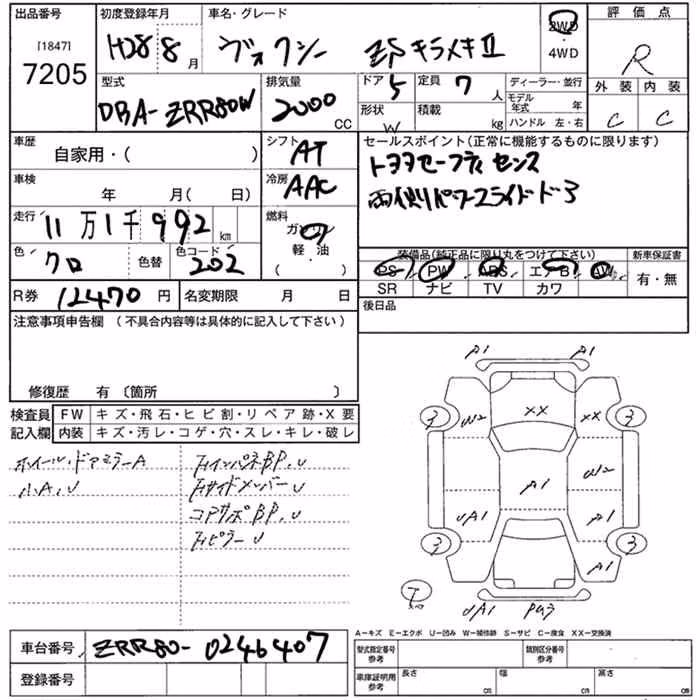 出品番号
[1847]
7205
初度登録年月
H28 8 月
車名・グレード
ヴォクシー ZS キラメキⅡ
2WD
・
4WD
評価点
R
外装 内装
C C
型式
DBA-ZRR80W
排気量
2000 CC
ドア 5
定員 7 人
形状 W
積載 kg
ディーラー・並行
モデル年式 年
ハンドル 左・右
車歴
自家用・( )
シフト AT
車検
年 月( 日)
冷房 AAC
走行
11万1千992 km
燃料
ガソリン
軽・油
( )
色
クロ
色替
色コード
202
R券 12470 円
名変期限 月 日
セールスポイント(正常に機能するものに限ります)
トヨタセーフティセンス
両側パワースライドドア
装備品(純正品に限り丸をつけて下さい)
PS PW ABS エアB AW
SR ナビ TV カワ
新車保証書
有・無
後日品
注意事項申告欄 (不具合内容等は具体的に記入して下さい)
修復歴 有 〔箇所 〕
検査員記入欄
FW キズ・飛石・ヒビ割・リペア跡・X要
内装 キズ・汚レ・コゲ・穴・スレ・キレ・破レ
ホイール・ドアミラーA
小A,U
FインパネBP,U
FサイドメンバーU
コアサポBP,U
FピラーU
A1 A1
3 W2 XX XX 3
W2
A1
UA1 A1
3 3
A1
UA1
A-キズ E-エクボ U-凹み W-補修跡 S-サビ C-腐食 XX-交換済
車台番号 ZRR80-0246407
登録番号
型式指定番号 参考
類別区分番号 参考
車庫証明用 参考
長さ cm
幅 cm
高さ cm